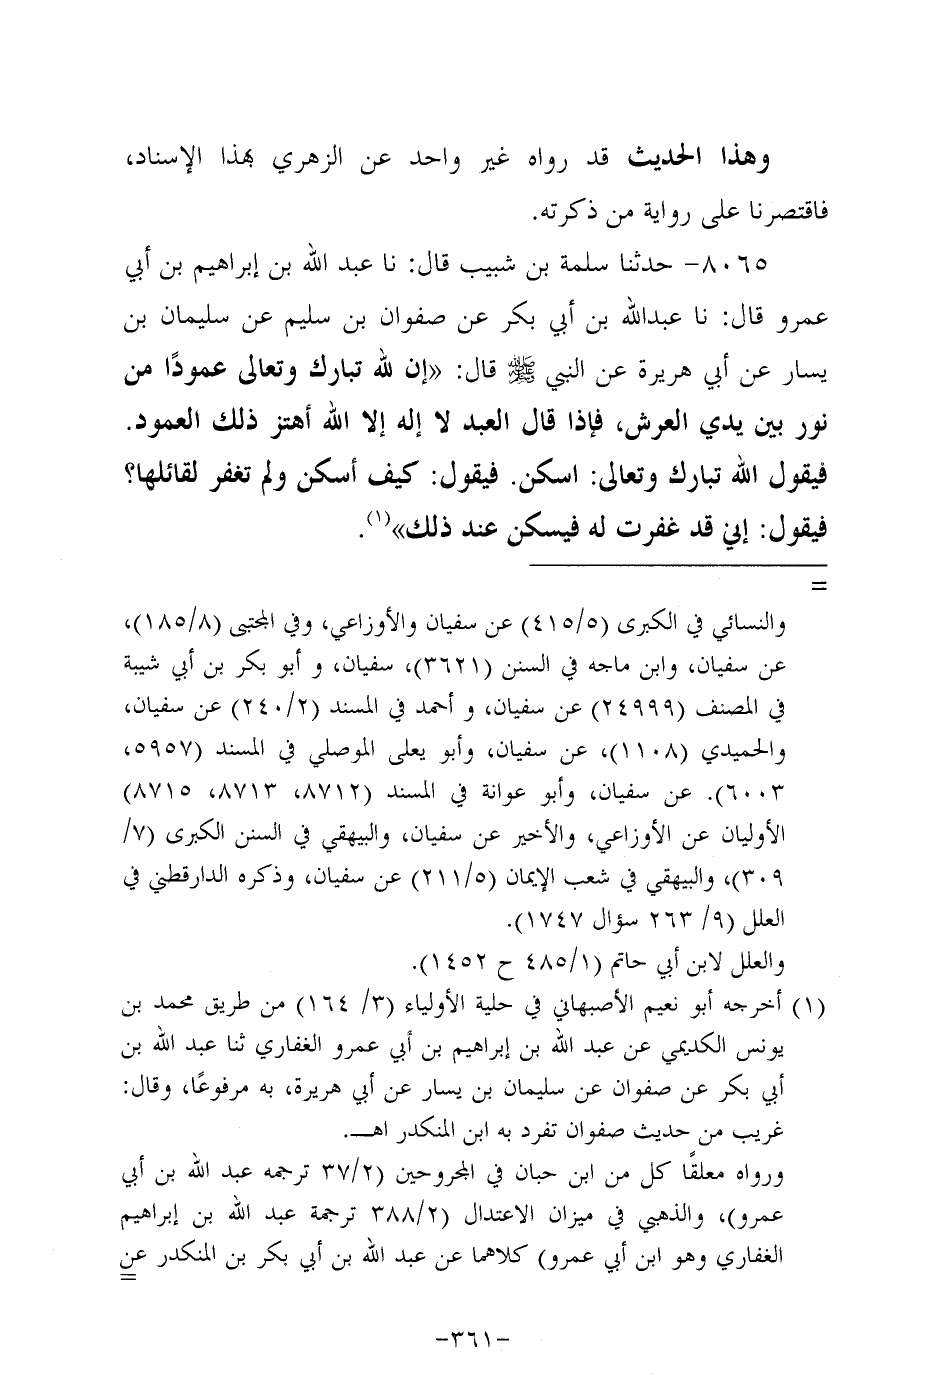 وهذا الحديث قد رواه غير واحد عن الزهري بهذا الإسناد،
فاقتصرنا على رواية من ذكرته.
٨٠٦٥– حدثنا سلمة بن شبيب قال: نا عبد الله بن إبراهيم بن أبي
عمرو قال: نا عبدالله بن أبي بكر عن صفوان بن سليم عن سليمان بن
يسار عن أبي هريرة عن النبي ﷺ قال: «إن لله تبارك وتعالى عمودًا من
نور بين يدي العرش، فإذا قال العبد لا إله إلا الله أهتز ذلك العمود.
فيقول الله تبارك وتعالى: اسكن. فيقول: كيف أسكن ولم تغفر لقائلها؟
فيقول: إني قد غفرت له فيسكن عند ذلك»(١).
=
والنسائي في الكبرى (٤١٥/٥) عن سفيان والأوزاعي، وفي المجتبى (١٨٥/٨)،
عن سفيان، وابن ماجه في السنن (٣٦٢١)، سفيان، و أبو بكر بن أبي شيبة
في المصنف (٢٤٩٩٩) عن سفيان، و أحمد في المسند (٢٤٠/٢) عن سفيان،
والحميدي (١١٠٨)، عن سفيان، وأبو يعلى الموصلي في المسند (٥٩٥٧،
٦٠٠٣). عن سفيان، وأبو عوانة في المسند (٨٧١٢، ٨٧١٣، ٨٧١٥)
الأوليان عن الأوزاعي، والأخير عن سفيان، والبيهقي في السنن الكبرى (٧/
٣٠٩)، والبيهقي في شعب الإيمان (٢١١/٥) عن سفيان، وذكره الدارقطني في
العلل (٩/ ٢٦٣ سؤال ١٧٤٧).
والعلل لابن أبي حاتم (٤٨٥/١ ح ١٤٥٢).
(١) أخرجه أبو نعيم الأصبهاني في حلية الأولياء (٣/ ١٦٤) من طريق محمد بن
يونس الكديمي عن عبد الله بن إبراهيم بن أبي عمرو الغفاري ثنا عبد الله بن
أبي بكر عن صفوان عن سليمان بن يسار عن أبي هريرة، به مرفوعًا، وقال:
غريب من حديث صفوان تفرد به ابن المنكدر اهـ.
ورواه معلقًا كل من ابن حبان في المجروحين (٣٧/٢ ترجمه عبد الله بن أبي
عمرو)، والذهبي في ميزان الاعتدال (٣٨٨/٢ ترجمة عبد الله بن إبراهيم
الغفاري وهو ابن أبي عمرو) كلاهما عن عبد الله بن أبي بكر بن المنكدر عن
=
–٣٦١–